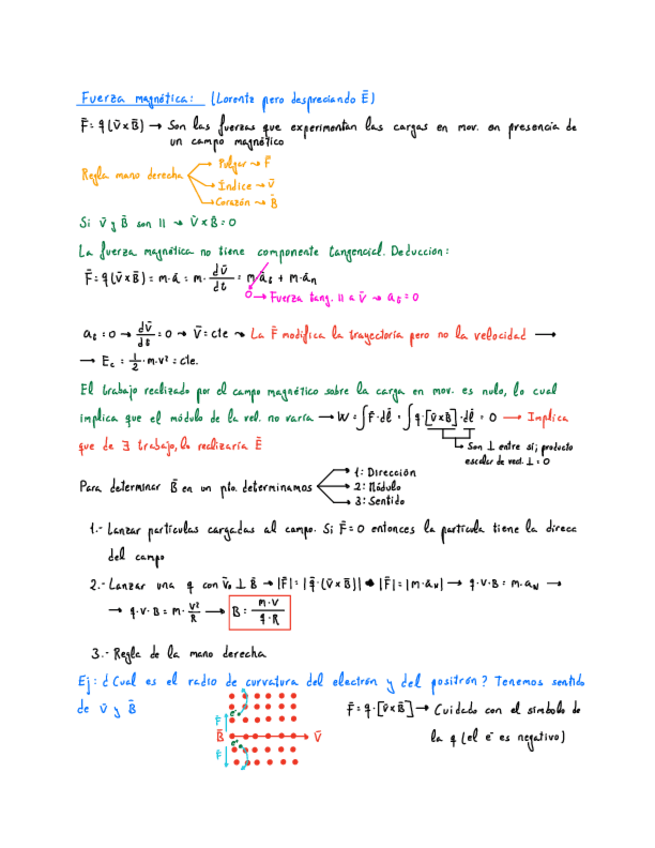 Fuerza magnética: (Lorentz pero despreciando Ē)
F̄ = q(v̄ x B̄) → Son las fuerzas que experimentan las cargas en mov. en presencia de
un campo magnético
Regla mano derecha → Pulgar → F̄
→ Índice → v̄
→ Corazón → B̄
Si v̄ y B̄ son || → v̄ x B̄ = 0
La fuerza magnética no tiene componente tangencial. Deduccion:
F̄ = q(v̄ x B̄) = m·ā = m· dv̄/dt = m/ā_t + m·ā_n
0 → Fuerza tang. || a v̄ → a_t = 0
a_t = 0 → dv̄/dt = 0 → v̄ = cte → La F̄ modifica la trayectoria pero no la velocidad →
→ Ec = 1/2·m·v² = cte.
El trabajo realizado por el campo magnético sobre la carga en mov. es nulo, lo cual
implica que el módulo de la vel. no varía → W = ∫F̄·dl̄ = ∫q·[v̄xB̄]·dl̄ = 0 → Implica
que de ∃ trabajo, lo realizaría Ē
Son ⊥ entre sí; producto
escalar de vect. ⊥ = 0
Para determinar B̄ en un pto. determinamos → 1: Dirección
→ 2: Módulo
→ 3: Sentido
1.- Lanzar partículas cargadas al campo. Si F̄ = 0 entonces la partícula tiene la direcc
del campo
2.- Lanzar una q con v̄₀ ⊥ B̄ → |F̄| = |q̄·(v̄xB̄)| → |F̄| = |m·a_N| → q·v·B = m·a_N →
→ q·v·B = m· v²/R → B = m·v/q·R
3.- Regla de la mano derecha
Ej: ¿Cual es el radio de curvatura del electrón y del positrón? Tenemos sentido
de v̄ y B̄
F̄ = q·[v̄xB̄] → Cuidado con el símbolo de
la q (el e⁻ es negativo)
F̄
B̄ v̄
F̄